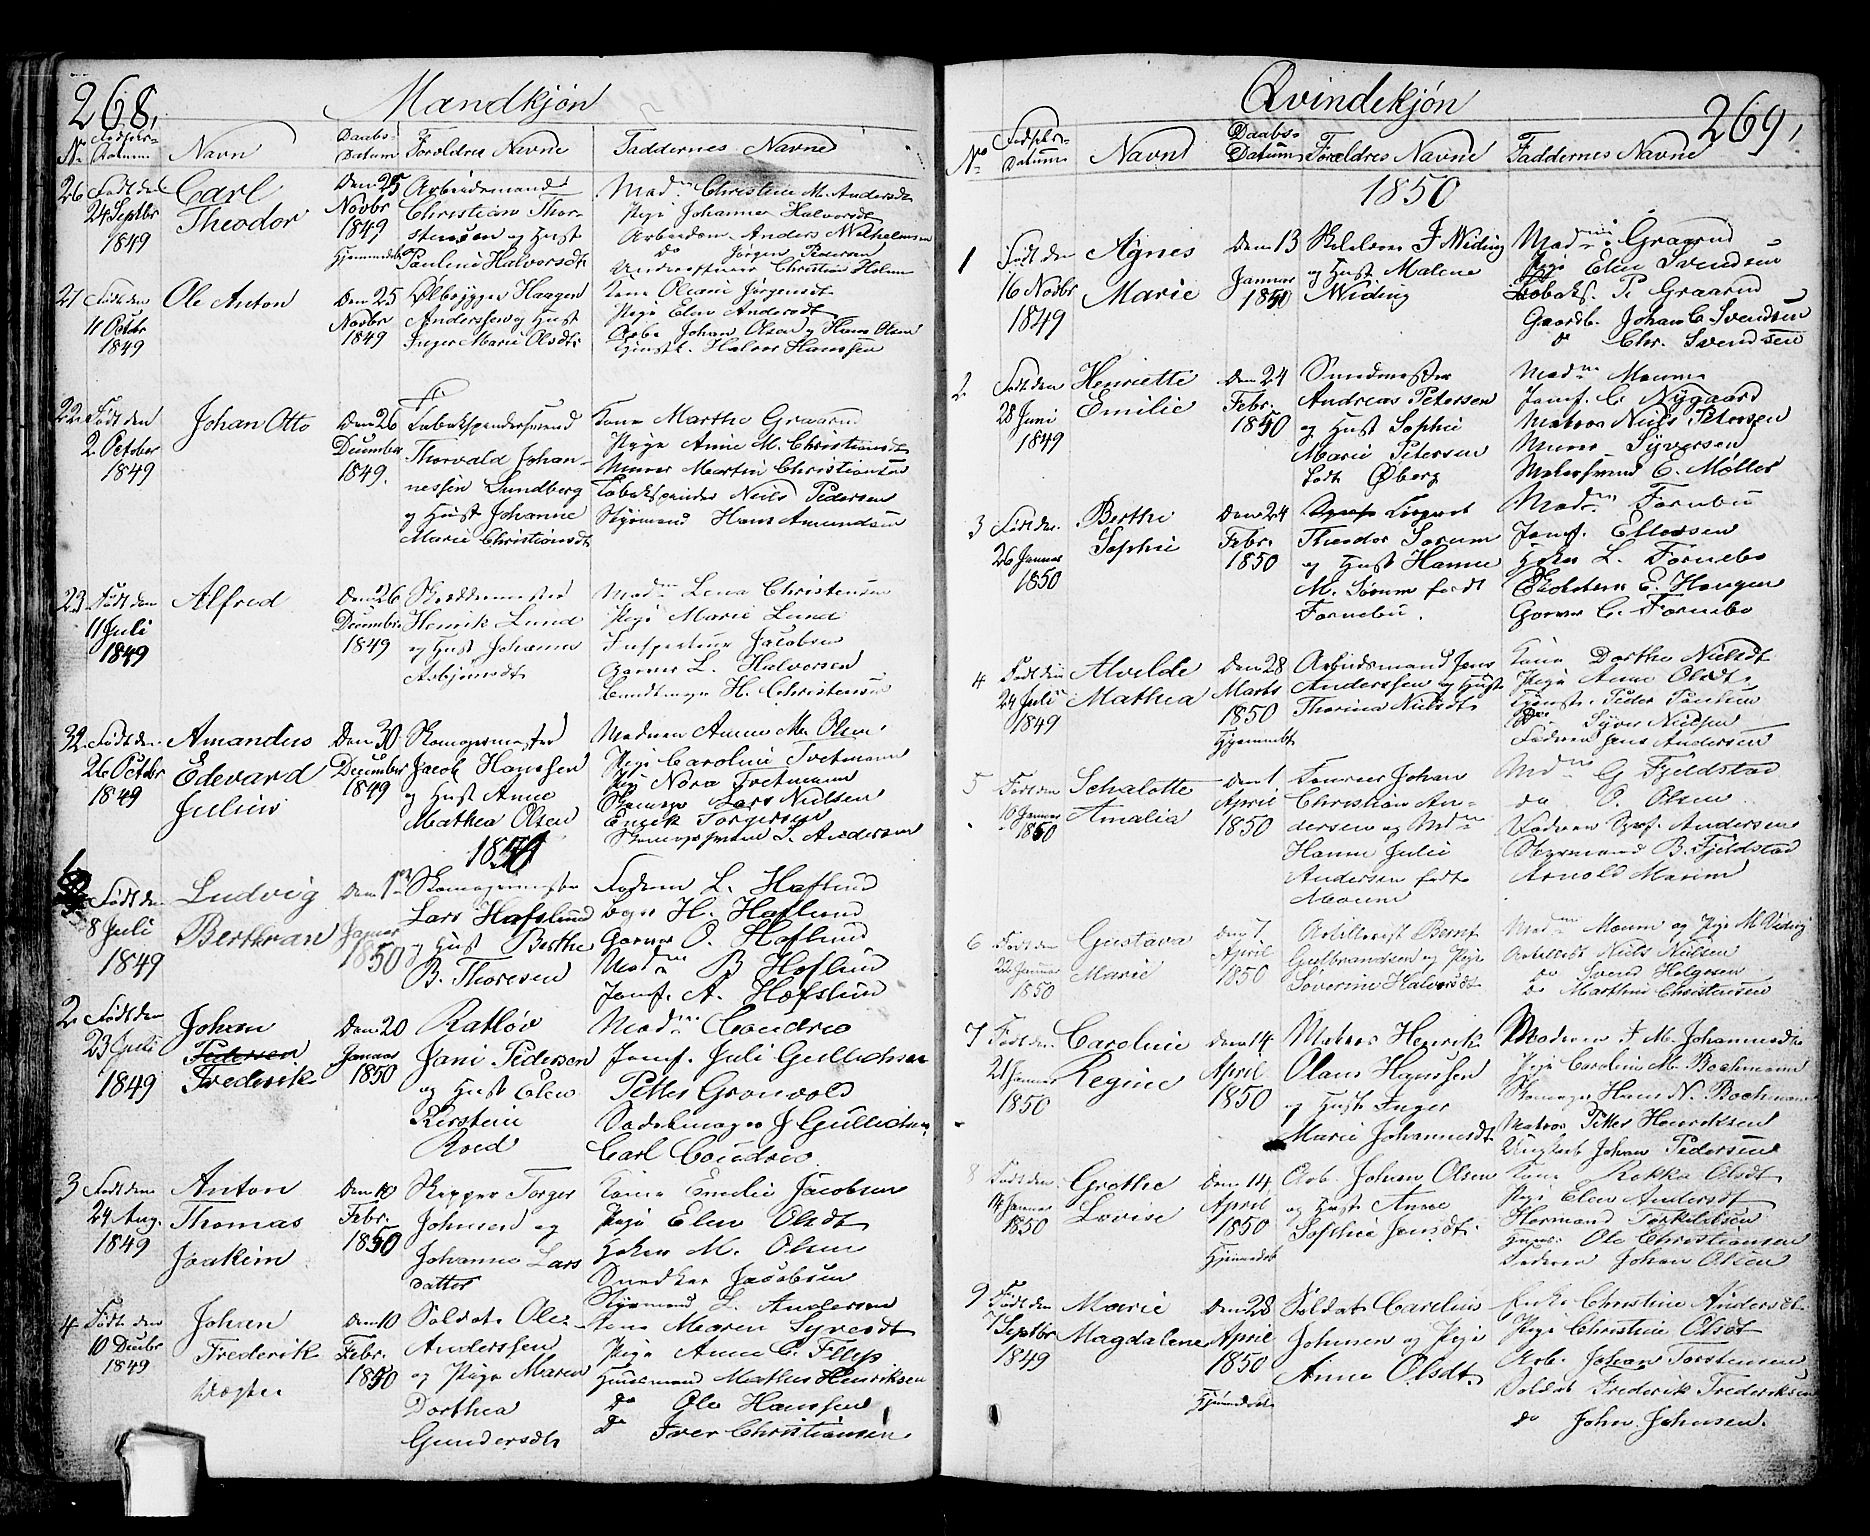 268,
Mandkjøn
No Fødsels-Datum Navn Daabs-Datum Forældres Navne Faddernes Navne
26 Født den 24 Septbr 1849
Carl Theodor
Den 25 Novbr 1849 Hjemmedøbt
Arbeidsmand
Christian Thor-
stensen og Hust
Pauline Halvorsdt
Madm Christine M. Andersdt
Pige Johanne Halvorsdt
Arbeidsm. Anders Wilhelmsen
do Jørgen Pedersen
Christian Holm
21 Født den 11 Octbr 1849
Ole Anton
Den 25 Novbr 1849
Ølbrygger Haagen
Anderssen og Hust
Inger Marie Olsdt
Kone Oleane Jørgensdt
Pige Elen Andersdt
Arbe Johan Olsen og Hans Olsen
Tjenstk. Halvor Hanssen
22 Født den 2 October 1849
Johan Otto
Den 26 December 1849.
Tobakspindersvend
Thorvald Johan-
nessen Lundberg
og Hust Johanne
Marie Christiansdt
Kone Marthe Graarud
Pige Anne M. Christiansdt
Murer Martin Christiansen
Tobakspinder Niels Pedersen
Styrmand Hans Amundsen
23 Født den 11 Juli 1849
Alfred
Den 26 December 1849
Skreddermester
Henrik Lund
og Hust Johanne
Asbjørnsdt
Madm Lena Christensen
Pige Marie Lund
Inspecteur Jacobsen
Garver L. Halvorsen
H. Christensen
32 Født den 26 Octbr 1849
Amandus Edevard Julius
Den 30 December 1849
Skomagermester
Jacob Hanssen
og Hust Anne
Mathea Olsen
Madmen Anne M. Olsen
Pige Caroline Tvetmann
Pige Nora Tvetmann
Skomager Lars Nielsen
Enrik Torgersen
Skomagersvend L. Andersen
1850
Født den 8 Juli 1849
Ludvig Berthran
Den 1ste Januar 1850
Skomagermester
Lars Hafslund
og Hust Berthe
B. Thoresen
Faderen L. Haflund
H. Haflund
Garver O. Haflund
Madm B Hoflund
Jomf. A. Hafslund
2 Født den 23 Juli 1849
Johan Pedersen Frederik
Den 20 Januar 1850
Ratløv
Jani Pedersen
og Hust Elen
Kerstine
Roed
Madm Condrio
Jomf. Juli Gullichsen
Petter Gronvold
Sadelmager J Gullichsen
Carl Condrio
3 Født den 24 Aug. 1849
Anton Thomas Joakim
Den 10 Febr. 1850
Skipper Torger
Johnsen og
Johanne Lars
datter
Kone Emilie Jacobsen
Pige Elen Olsdt
M. Olsen
Snedker Jacobsen
Styrmand L. Andersen
4 Født den 10 Decbr 1849
Johan Frederik
Den 10 Febr. 1850
Soldat Ole
Anderssen
og Pige Maren
Dorthea
Gundersdt
Kone Maren Syversdt
Pige Anne C.
Huusmand Mathis Henriksen
do Ole Hanssen
Do Iver Christiansen
Qvindekjøn
269,
No Fødsels-Datum Navn Daabs-Datum Forældres Navne Faddernes Navne
1850
1 Født den 16 Novbr 1849
Agnes Marie
Den 13 Januar 1850
F. Widing
og Hust Malene
Widing
Madm Graarud
Pige Elen Svendsen
Tobaks. P. Graarud
Gaardb. Johan C. Svendsen
do Chr. Svendsen
2 Født den 28 Juni 1849
Henriette Emilie
Den 24 Febr. 1850
Andreas Petersen
og Hust Sophie
Marie Petersen
født Øberg
Madm Moum
Jomf. C. Nygaard
Matros Niels Petersen
Murer Syversen
Malersvend E. Møller
3 Født den 26 Januar 1850
Berthe Sophie
Den 24 Febr. 1850
Theodor Sorum
og Hust Hanne
M. Sørum født
Fornebu.
Madm Fornebu
Jomf. Ellevsen
L. Fornebo
E. Haugen
Garver C. Fornebo
4 Født den 24 Juli 1849
Alvilde Mathea
Den 28 Marts 1850 Hjemmedt
Arbeidsmand Jens
Anderssen og Hust
Thorina Nielsdt
Kone Dorthe Nielsdt
Pige Anne Olsdt
Tjenstk. Peder Poulsen
Do Syver Nielsen
Faderen Jens Andersen
5 Født den 10 Januar 1850
Schalotte Amalia
Den 1 April 1850
Johan
Christian An-
dersen og Mdm
Hanne Julie
Andersen født
Moum
Mdm G Fjeldstad
do O. Olsen
Faderen Andersen
Styrmand B. Fjeldstad
Arnold Marim
6 Født den 22 Januar 1850
Gustava Marie
den 7 April 1850
Artillerist Bernt
Gulbrandsen og Pige
Søverine Halvorsdt
Madm Moum og Pige M. Viding
Artillerist Niels Nielsen
do Svend Helgesen
Do Marthin Christensen
7 Født den 21 Januar 1850
Caroline Regine
Den 14 April 1850
Matros Henrik
Olaus Hanssen
og Hust Inger
Marie Johannesdt
Moderen I. M. Johannesdt
Pige Caroline M. Bochmann
Skomager Hans N. Bochmann
Matros Petter Henriksen
Ungkarl Johan Pedersen
8 Født den 14 Januar 1850
Grethe Lovise
Den 14 April 1850 Hjemmedøbt
Arb. Johan Olsen
og Hust Anne
Sophie Jensdt
Kone Rokke Olsdt
Pige Elen Andersdt
Hermand Torkildsen
Ole Christiansen
Faderen Johan Olsen
9 Født den 7 Septbr 1849
Marie Magdalene
Den 28 April 1850 Hjemmedøbt
Soldat Carelius
Johnsen og Pige
Anne Olsdt
Enke Christine Andersdt
Pige Christine Olsdt
Arb. Johan Torstensen
Soldat Frederik Frederiksen
do John Johnsen.